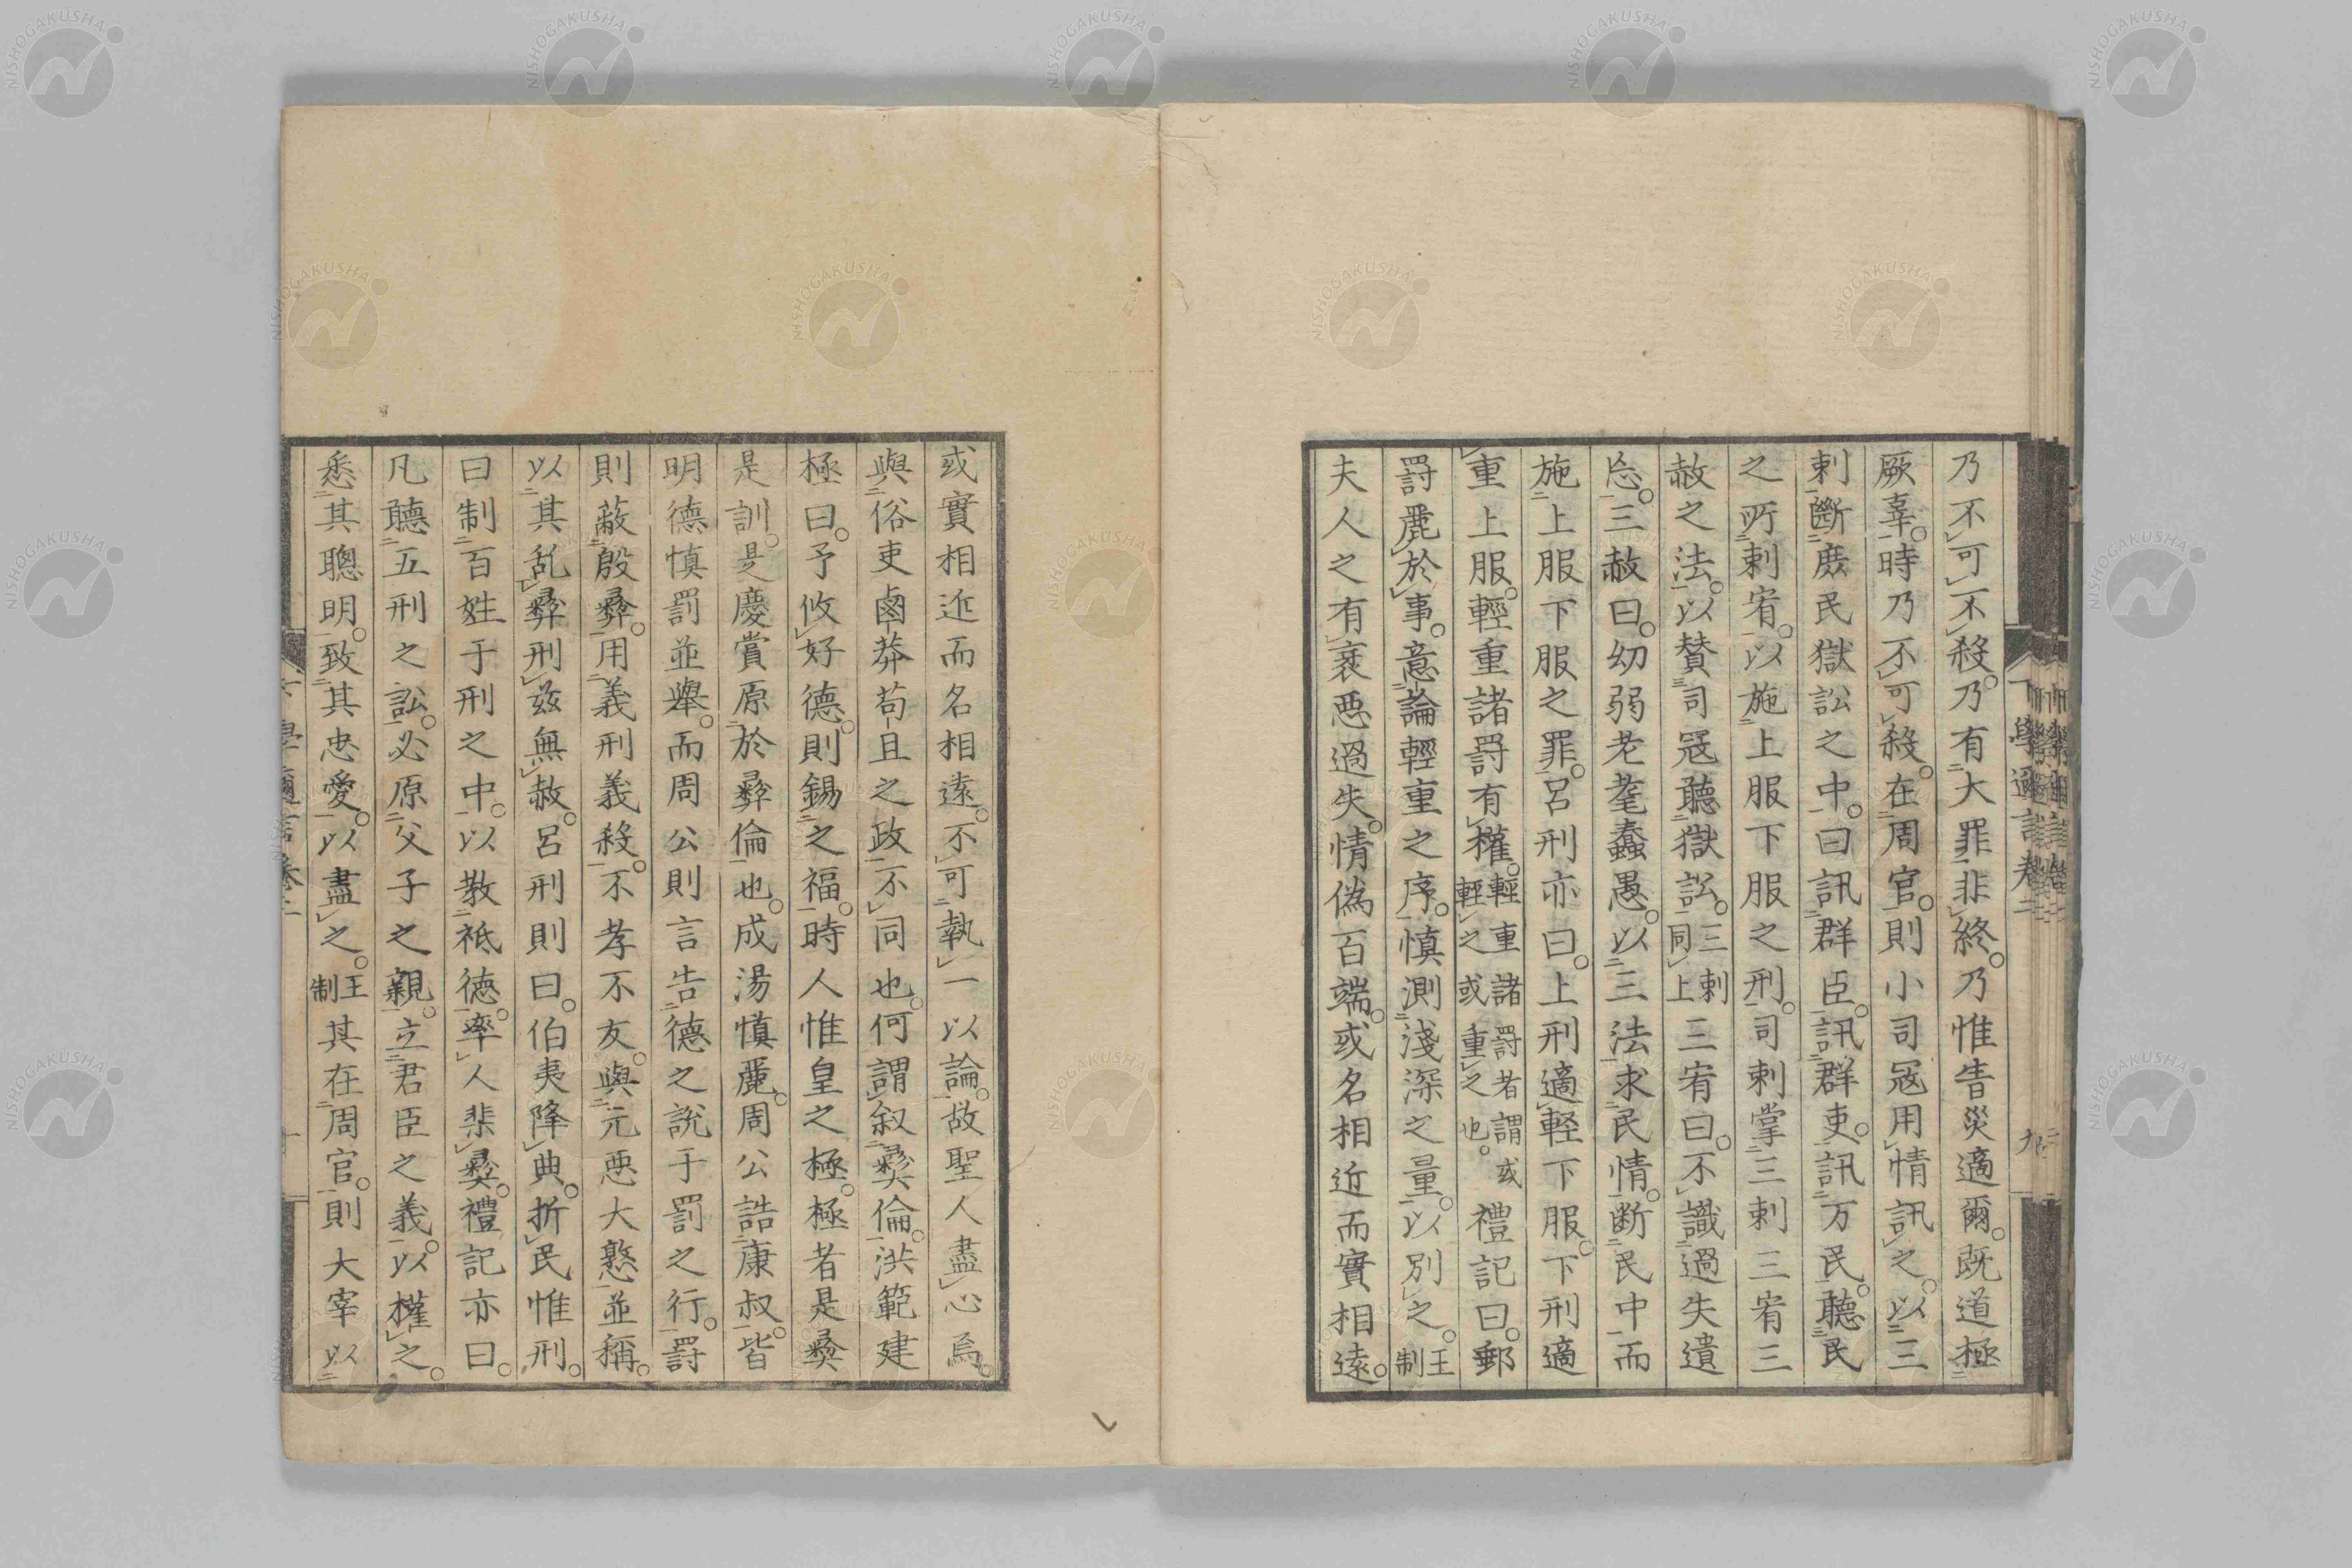 乃不可不殺。乃有大罪非終。乃惟眚災適爾。既道極
厥辜。時乃不可殺。在周官。則小司冦用情訊之。以三
刺斷庶民獄訟之中。曰訊群臣。訊群吏。訊万民。聽民
之所刺宥。以施上服下服之刑。司刺掌三刺三宥三
赦之法。以賛司冦聽獄訟。三刺同上三宥曰。不識過失遺
忘。三赦曰。幼弱老耄蠢愚。以三法求民情。断民中而
施上服下服之罪。呂刑亦曰。上刑適軽下服。下刑適
重上服。輕重諸罸有權。輕重諸罸者謂或輕之或重之也。禮記曰。郵
罸麗於事。意論輕重之序。慎測淺深之量。以別之。王制
夫人之有衺悪過失。情偽百端。或名相近而實相遠。
或實相近而名相遠。不可執一以論。故聖人盡心焉。
與俗吏鹵莽苟且之政不同也。何謂叙彝倫。洪範建
極曰。予攸好德。則錫之福。時人惟皇之極。極者是彝
是訓。是慶賞原於彝倫也。成湯慎麗。周公誥康叔。皆
明德慎罰並舉。而周公則言告德之説于罰之行。罸
則蔽殷彝。用義刑義殺。不孝不友。與元悪大憝並稱。
以其乱彝刑茲無赦。呂刑則曰。伯夷降典。折民惟刑。
曰制百姓于刑之中。以教祗德。率人棐彝。禮記亦曰。
凡聽五刑之訟。必原父子之親。立君臣之義。以權之。
悉其聰明。致其忠愛。以盡之。王制其在周官。則大宰以
下學邇言卷二
九